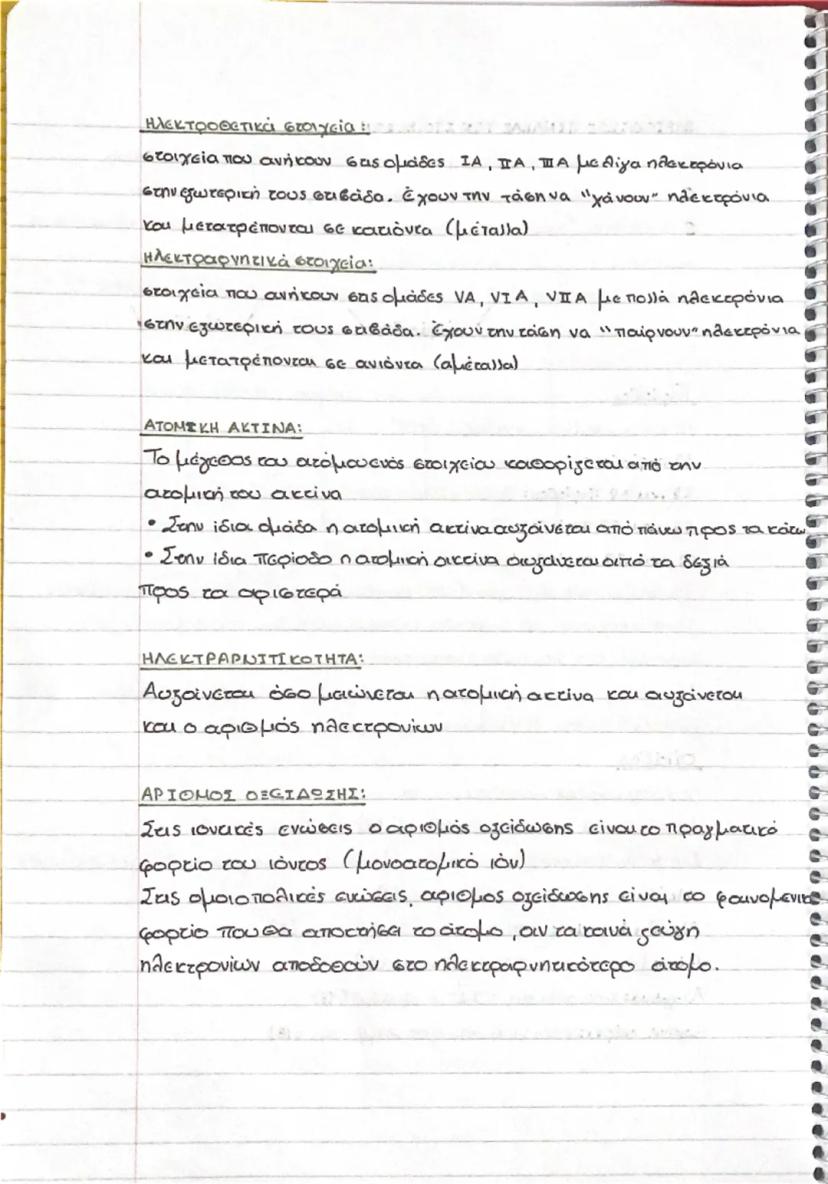 Ηλεκτροθετικά στοιχεία:
στοιχεία που ανήκουν στις ομάδες ΙΑ, ΙΙΑ, ΙΙΙΑ με λίγα ηλεκτρόνια
στην εξωτερική τους στιβάδα. Έχουν την τάση να "χάνουν" ηλεκτρόνια
και μετατρέπονται σε κατιόντα (μέταλλα)
Ηλεκτραρνητικά στοιχεία:
στοιχεία που ανήκουν στις ομάδες VA, VIA, VIIA με πολλά ηλεκτρόνια
στην εξωτερική τους στιβάδα. Έχουν την τάση να "παίρνουν" ηλεκτρόνια
και μετατρέπονται σε ανιόντα (αμέταλλα)
ΑΤΟΜΙΚΗ ΑΚΤΙΝΑ:
Το μέγεθος του ατόμου ενός στοιχείου καθορίζεται από την
ατομική του ακτίνα
• Στην ίδια ομάδα η ατομική ακτίνα αυξάνεται από πάνω προς τα κάτω
• Στην ίδια περίοδο η ατομική ακτίνα αυξάνεται από τα δεξιά
προς τα αριστερά
ΗΛΕΚΤΡΑΡΝΙΤΙΚΟΤΗΤΑ:
Αυξάνεται όσο μειώνεται η ατομική ακτίνα και αυξάνεται
και ο αριθμός ηλεκτρονίων
ΑΡΙΘΜΟΣ ΟΞΕΙΔΩΣΗΣ:
Στις ιοντικές ενώσεις ο αριθμός οξείδωσης είναι το πραγματικό
φορτίο του ιόντος (μονοατομικό ιόν)
Στις ομοιοπολικές ενώσεις, αριθμος οξείδωσης είναι το φαινομενικό
φορτίο που θα αποκτήσει το άτομο, αν τα κοινά ζεύγη
ηλεκτρονίων αποδοθούν στο ηλεκτραρνητικότερο άτομο.